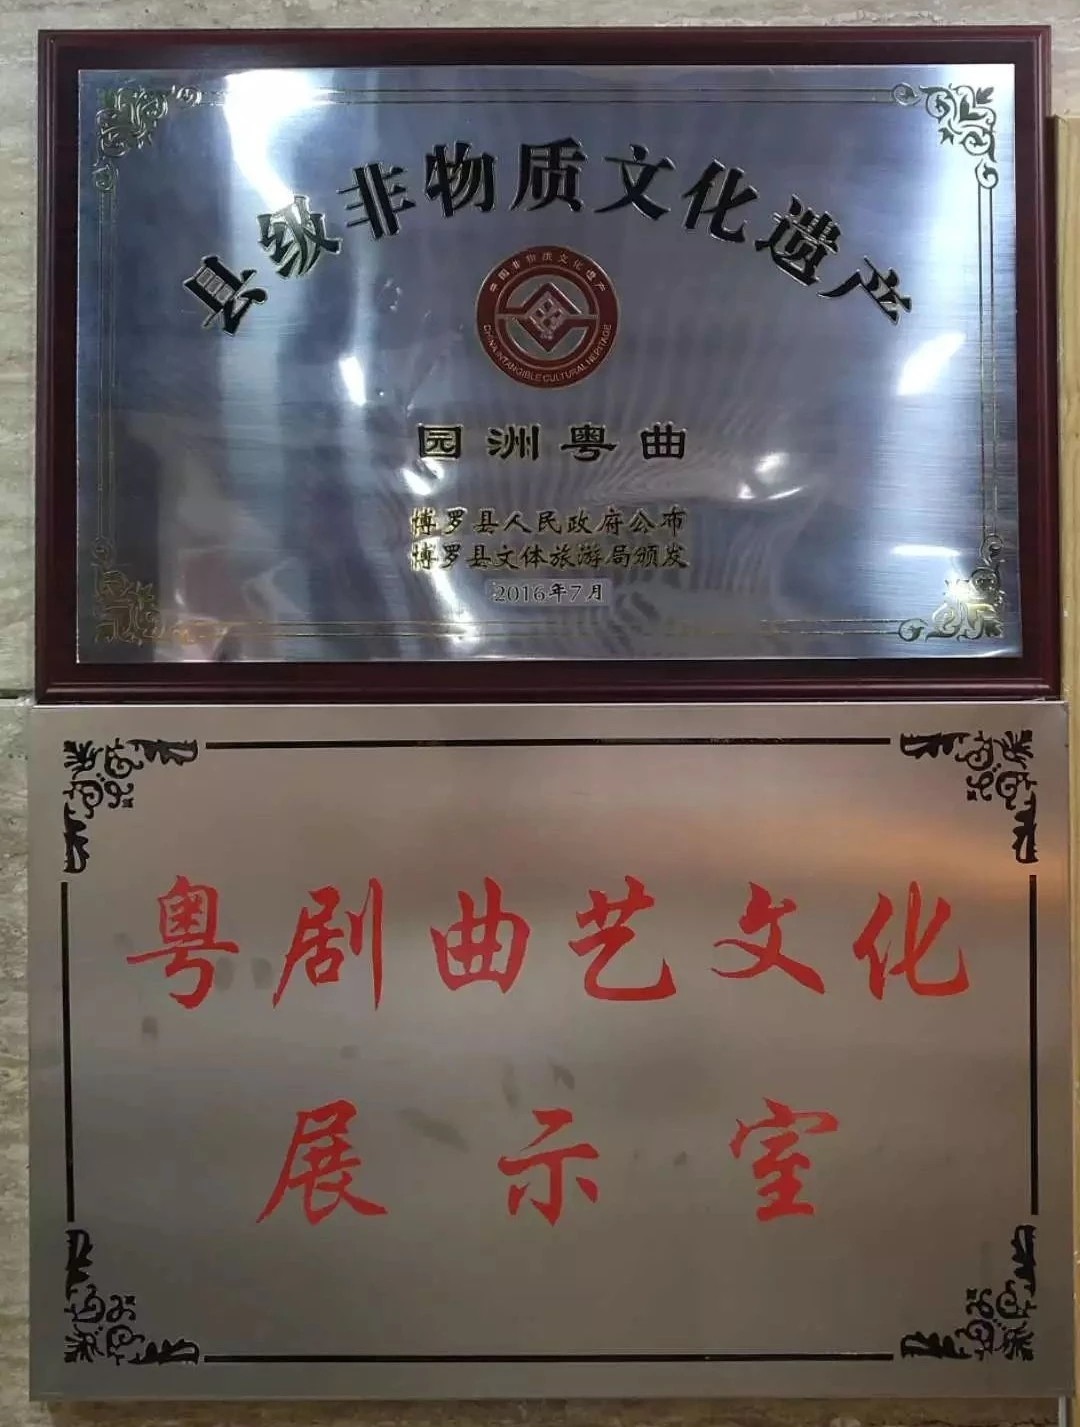 县级非物质文化遗产
中国非物质文化遗产
CHINA INTANGIBLE CULTURAL HERITAGE
园洲粤曲
博罗县人民政府公布
博罗县文体旅游局颁发
2016年7月
粤剧曲艺文化
展示室